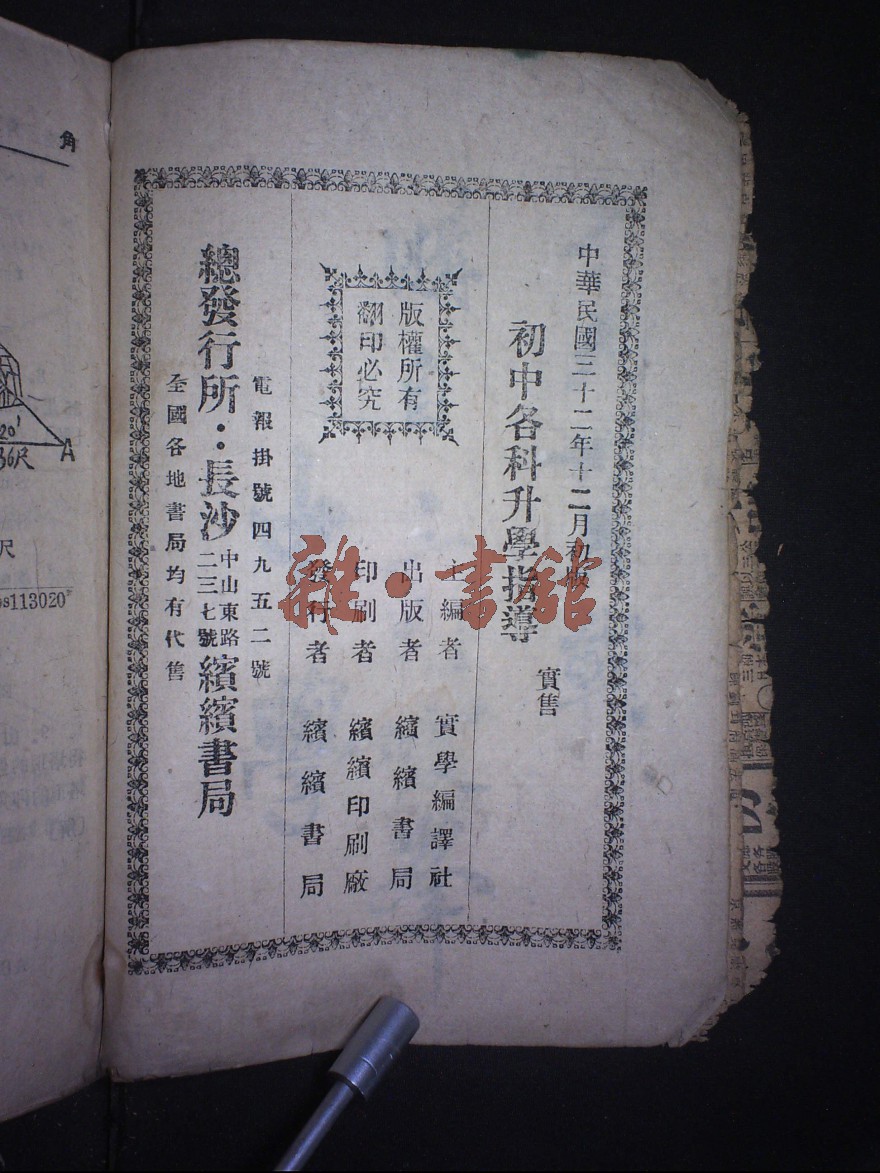 中華民國三十二年十二月初版
初中各科升學指導
實售
版權所有
翻印必究
主編者 實學編譯社
出版者 繽繽書局
印刷者 繽繽印刷廠
發行者 繽繽書局
電報掛號四九五二號
總發行所：長沙中山東路二三七號繽繽書局
全國各地書局均有代售
雜·書館
角
20'
36尺
A
尺
os113020"